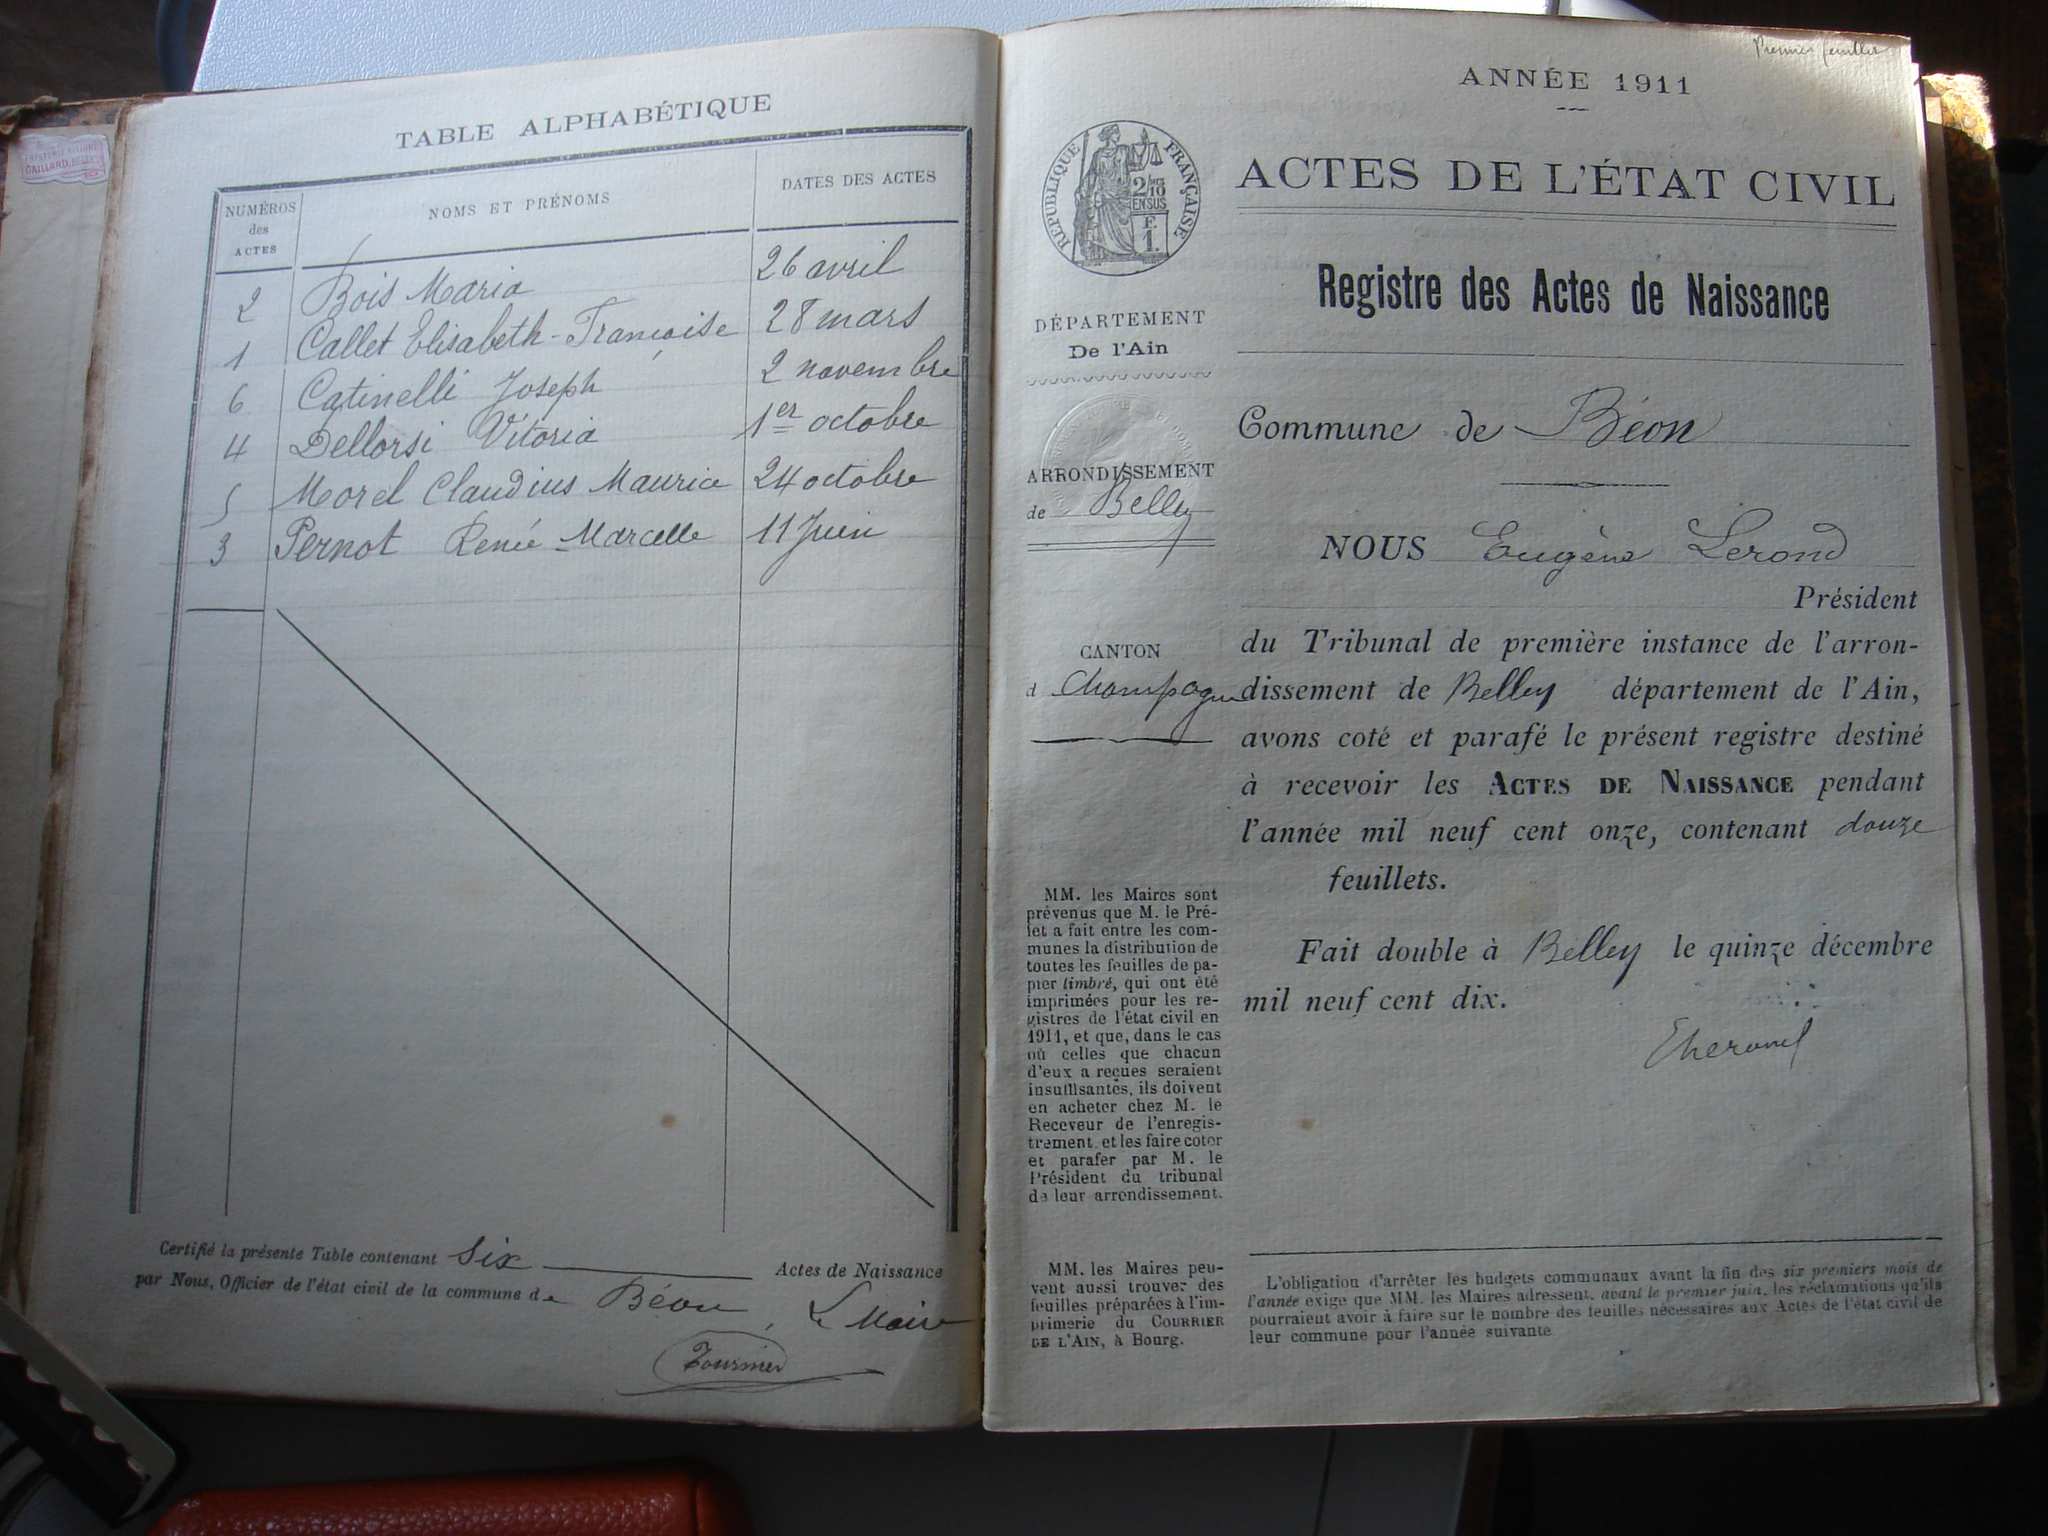 TABLE ALPHABÉTIQUE
NUMÉROS des ACTES
NOMS ET PRÉNOMS
DATES DES ACTES
2 Bois Maria 26 avril
1 Callet Elisabeth-Françoise 28 mars
6 Catinelli Joseph 2 novembre
4 Dellorsi Vitoria 1er octobre
5 Morel Claudius Maurice 24 octobre
3 Pernot Renée-Marcelle 11 Juin
Certifié la présente Table contenant Six Actes de Naissance
par Nous, Officier de l'état civil de la commune de Béon, Le Maire
Tournier
GAILLARD
Premier feuillet
ANNÉE 1911
RÉPUBLIQUE FRANÇAISE
2/10
EN SUS
F.
1.
ACTES DE L'ÉTAT CIVIL
Registre des Actes de Naissance
DÉPARTEMENT
De l'Ain
Commune de Béon
ARRONDISSEMENT
de Belley
NOUS Eugène Lerond
Président
du Tribunal de première instance de l'arron-
CANTON
d Champagne
dissement de Belley département de l'Ain,
avons coté et parafé le présent registre destiné
à recevoir les ACTES DE NAISSANCE pendant
l'année mil neuf cent onze, contenant douze
feuillets.
Fait double à Belley le quinze décembre
mil neuf cent dix.
MM. les Maires sont
prévenus que M. le Pré-
fet a fait entre les com-
munes la distribution de
toutes les feuilles de pa-
pier timbré, qui ont été
imprimées pour les re-
gistres de l'état civil en
1911, et que, dans le cas
où celles que chacun
d'eux a reçues seraient
insuffisantes, ils doivent
en acheter chez M. le
Receveur de l'enregis-
trement, et les faire coter
et parafer par M. le
Président du tribunal
de leur arrondissement.
MM. les Maires peu-
vent aussi trouver des
feuilles préparées à l'im-
primerie du COURRIER
DE L'AIN, à Bourg.
L'obligation d'arrêter les budgets communaux avant la fin des six premiers mois de
l'année exige que MM. les Maires adressent, avant le premier juin, les réclamations qu'ils
pourraient avoir à faire sur le nombre des feuilles nécessaires aux Actes de l'état civil de
leur commune pour l'année suivante